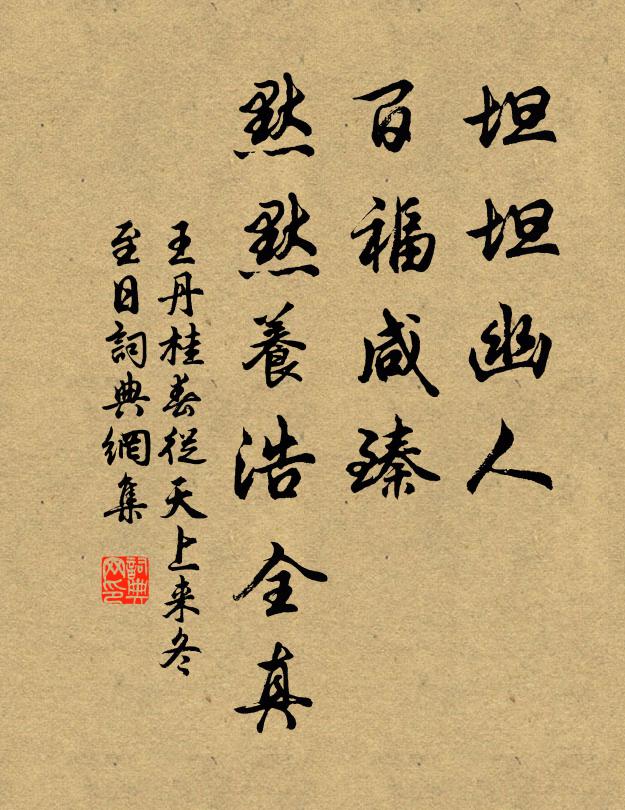 坦坦幽人
百福咸臻
默默養浩全真
王丹桂春從天上来冬
至日詞典網集
詞典
网印